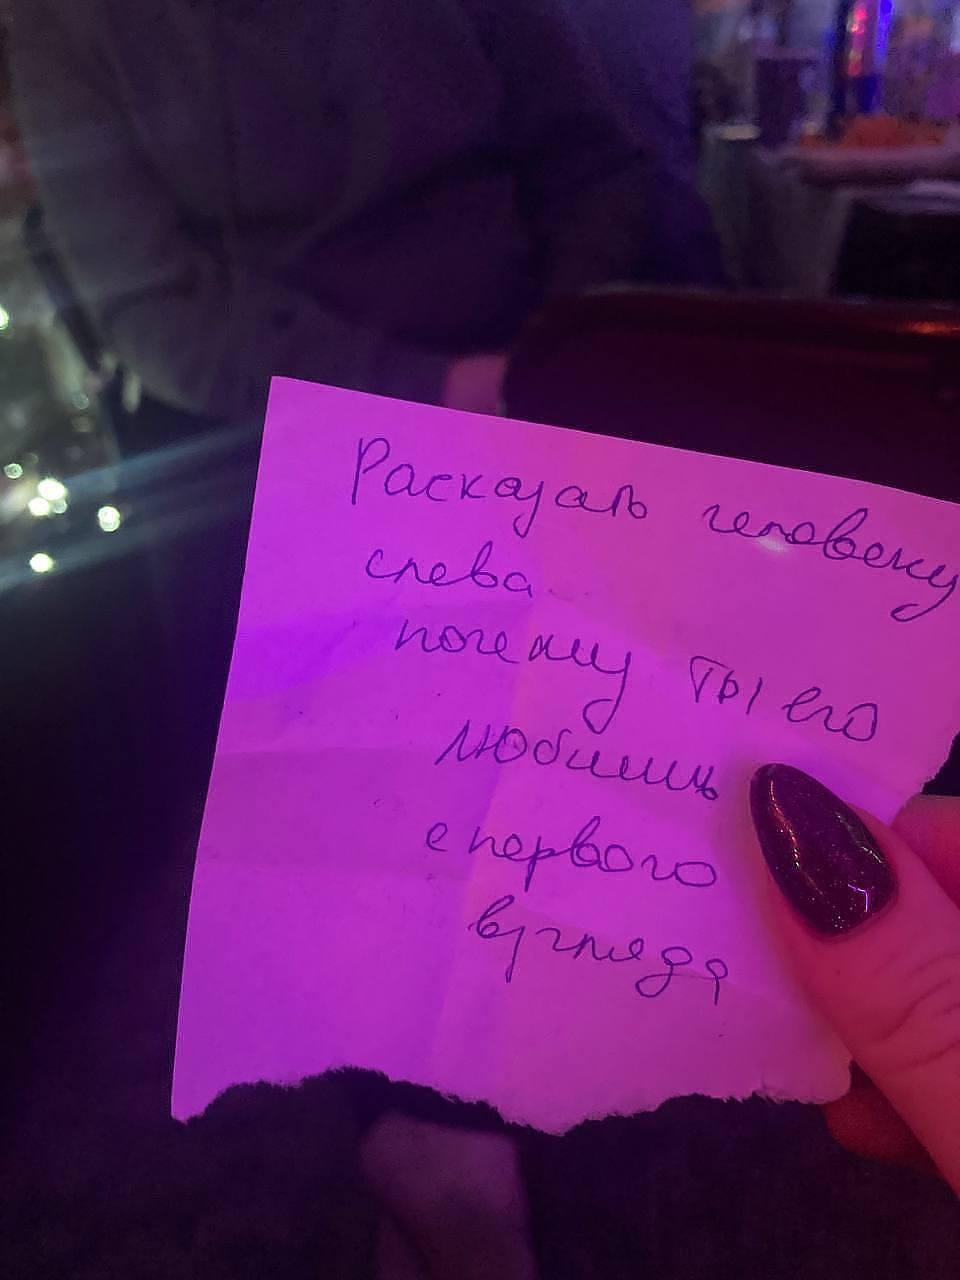 Расказать человеку
слева
почему ты его
любишь
с первого
взгляда